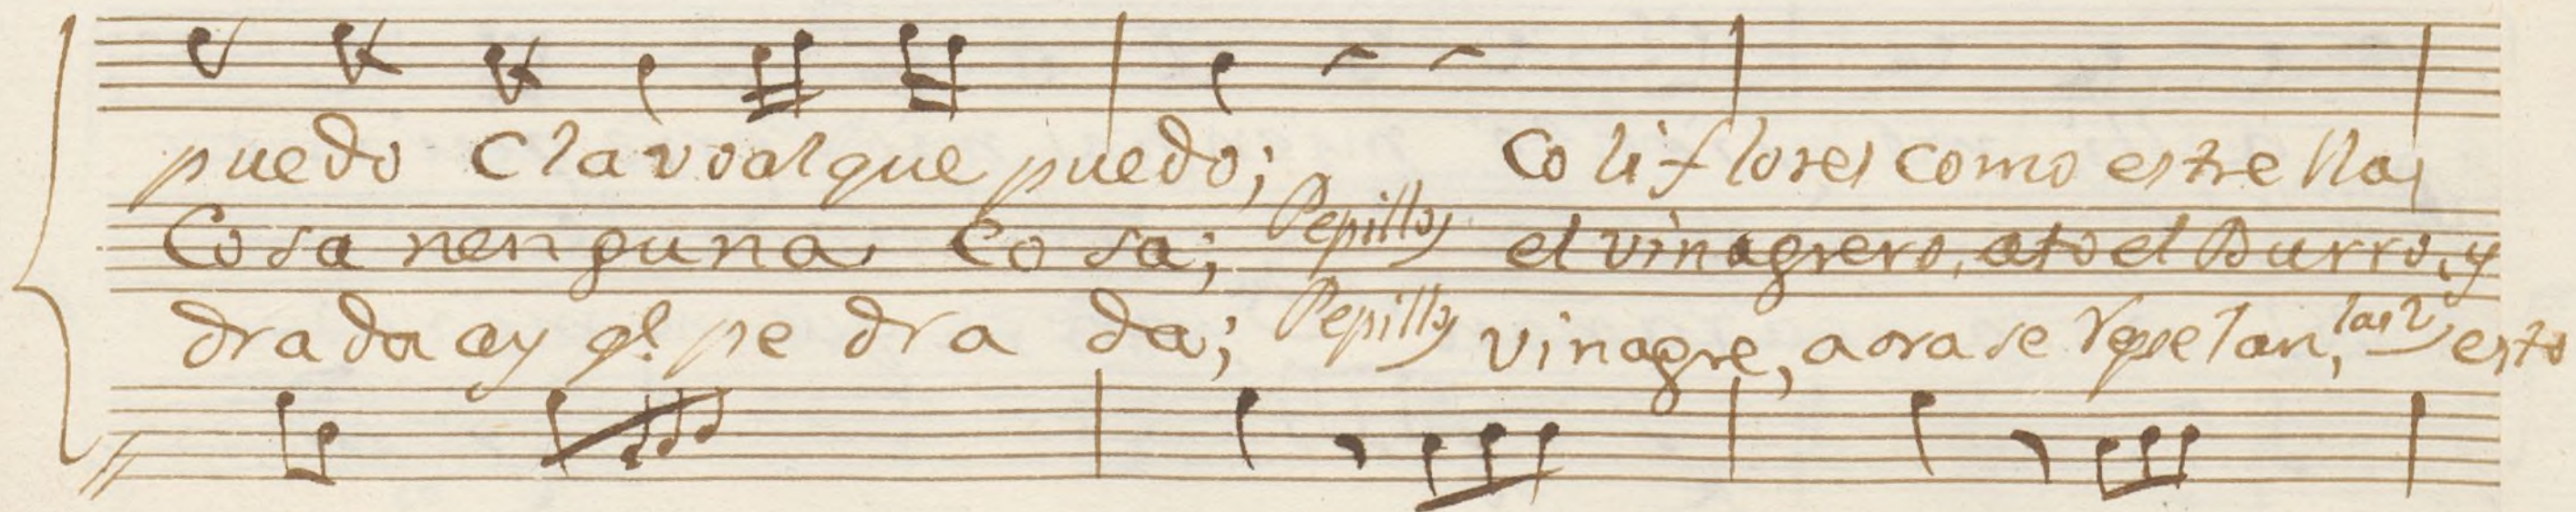 puedo Clavo al que puedo; Coliflores como estrellas
Cosa nenguna Cosa; Pepillo el vinagrero, ato el Burro, y
drada ay qe. pedrada; Pepillo vinagre, aora se las 2 esto